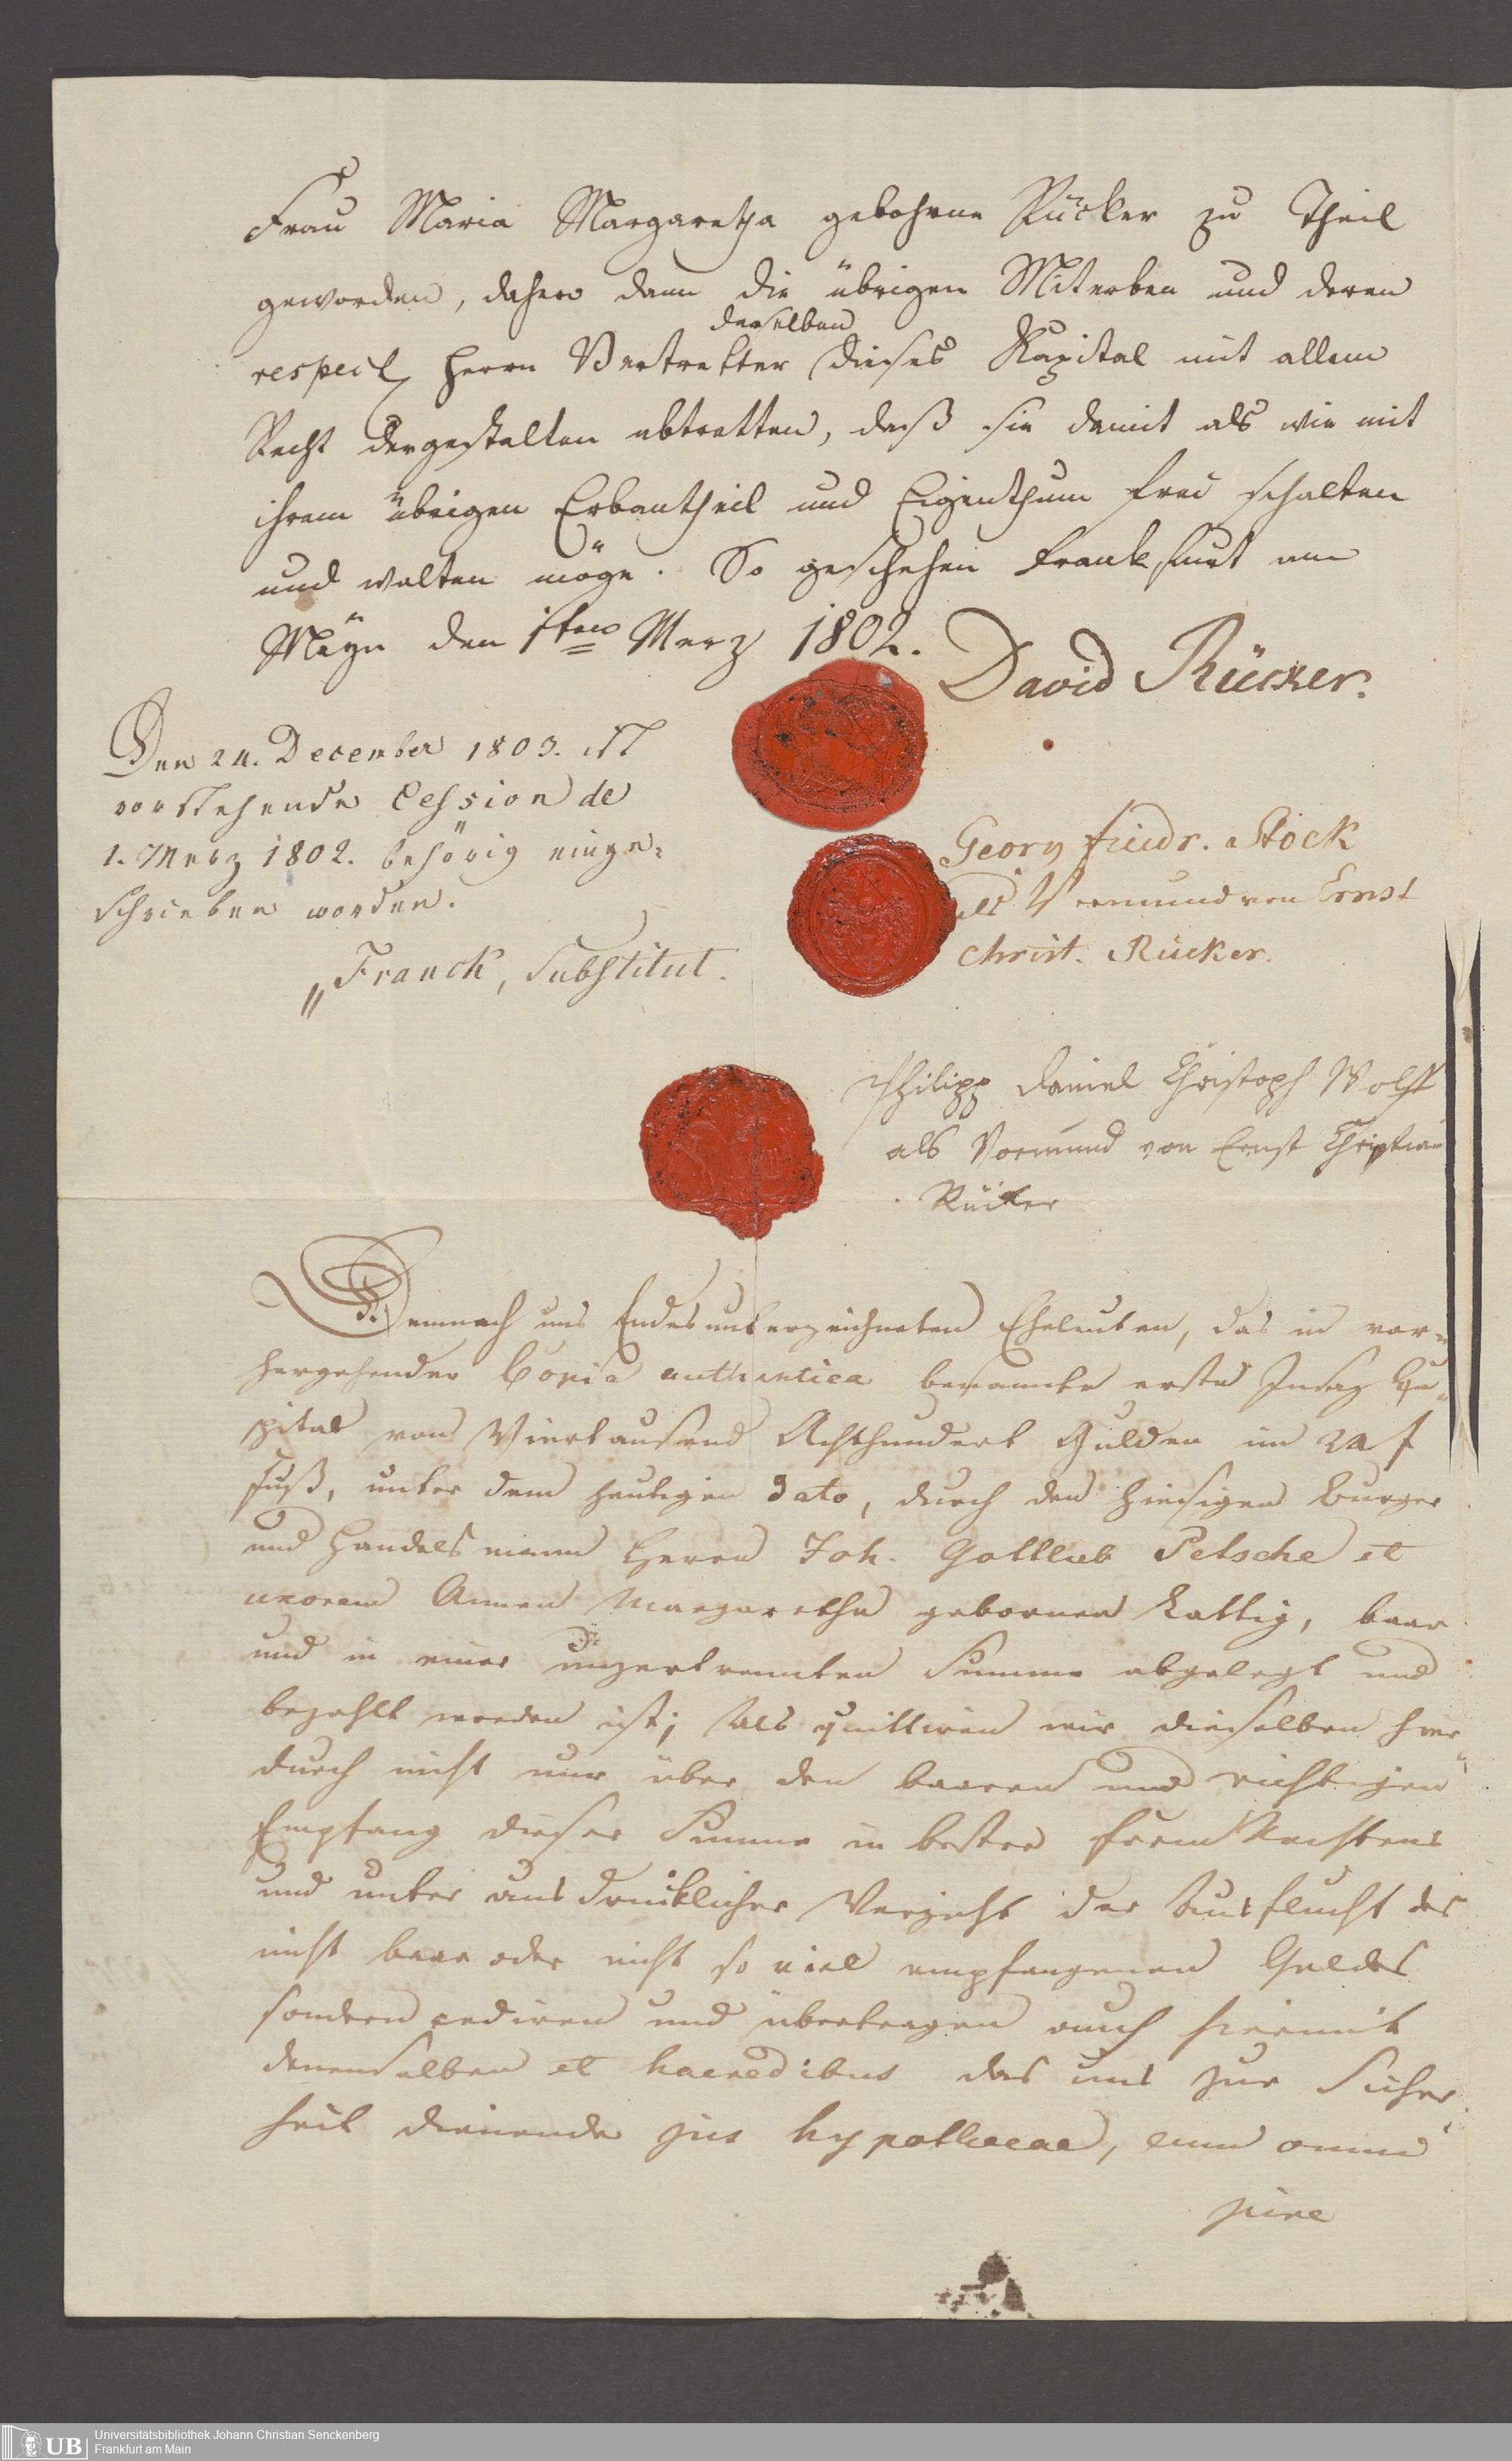 Frau Maria Margaretha gebohrne Rücker zu Theil
geworden, dahero dann die übrigen Miterben und deren
derselben
respect. Herrn Vertretter dieses Kapital mit allem
Recht dergestalten abtretten, daß sie damit als wie mit
ihrem übrigen Erbantheil und Eigenthum frei schalten
und walten möge. So geschehen Frankfurt am
Mayn den 1ten Merz 1802.
David Rücker.
Den 24. December 1803. ist
vorstehende Cession de
1. Merz 1802. behörig einge=
schrieben worden.
Franck, Substitut.
Georg Friedr. Stock
als Vormund von Ernst
Christ. Rücker.
Philipp Daniel Christoph Wolff
als Vormund von Ernst Christian
Rücker
Demnach uns Endesunterzeichneten Eheleuten, das in vor=
hergehender Copia authentica benannte erste Insaz Ka=
pital von Viertausend Achthundert Gulden im 24 f
Fuß, unter dem heutigen dato, durch den hiesigen Burger
und Handelsmann Herrn Joh. Gottlieb Petsche et
uxorem Annen Margaretha gebornen Kattig, baar
und in einer unzertrennten Summe abgelegt und
bezahlt worden ist; Als quittiren wir dieselben hier=
durch nicht nur über den baaren und richtigen
Empfang dieser Summe in bester Form Rechtens
und unter ausdrücklicher Verzicht der Ausflucht des
nicht baar oder nicht so viel empfangenen Geldes
sondern cediren und übertragen auch hiermit
denenselben et haeredibus das uns zur Sicher=
heit dienende jus hypothecae, cum omni
jure
Universitätsbibliothek Johann Christian Senckenberg
Frankfurt am Main
UB